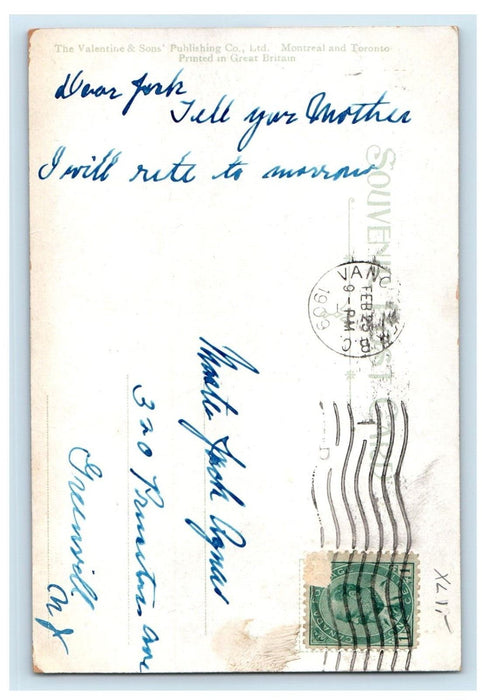 The Valentine & Sons' Publishing Co., Ltd. Montreal and Toronto
Printed in Great Britain
Dear Jack
Tell your Mother
I will rite to morrow
SOUVENIR POST CARD
VANC
FEB 23
9 - P.M.
B.C.
1909
Jack
320 Princeton Ave
Greenvill
N J
XL 1,-